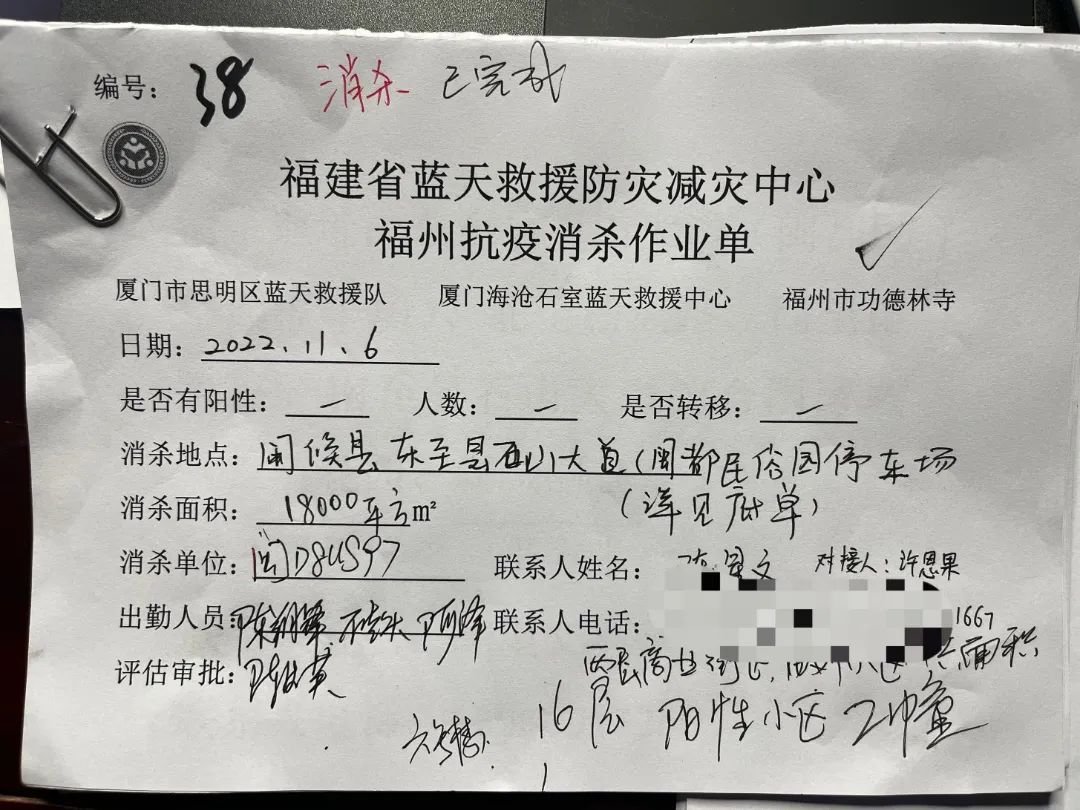 编号: 38 消杀 已完成
福建省蓝天救援防灾减灾中心
福州抗疫消杀作业单
厦门市思明区蓝天救援队 厦门海沧石室蓝天救援中心 福州市功德林寺
日期: 2022.11.6
是否有阳性: — 人数: — 是否转移: —
消杀地点: 闽候县 大道(闽都民俗园停车场
消杀面积: 18000平方m² (详见底单)
消杀单位: 闽D8US97 联系人姓名: 对接人:许恩果
出勤人员: 联系人电话: 1667
评估审批: 两层商业街 面积
16层 阳性小区